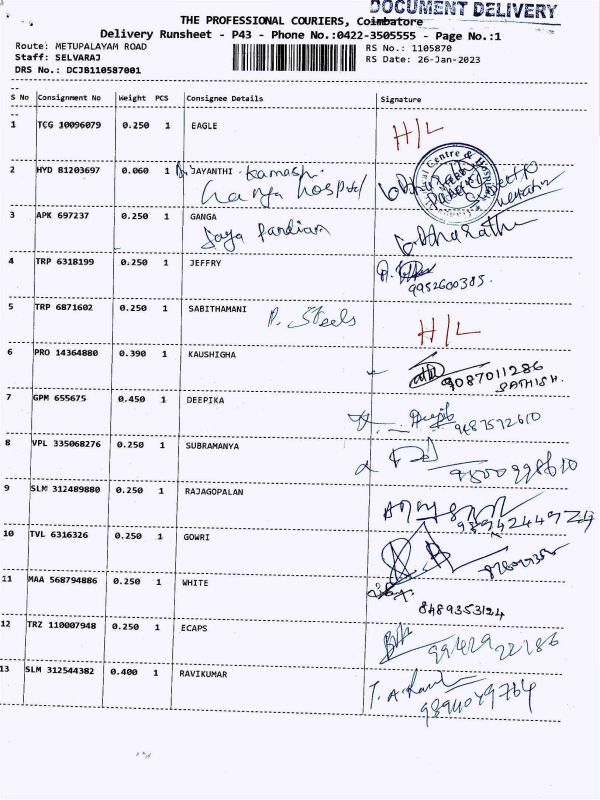 DOCUMENT DELIVERY
THE PROFESSIONAL COURIERS, Coimbatore
Delivery Runsheet - P43 - Phone No.:0422-3505555 - Page No.:1
Route: METUPALAYAM ROAD
RS No.: 1105870
Staff: SELVARAJ
RS Date: 26-Jan-2023
DRS No.: DCJB110587001
S No Consignment No Weight PCS Consignee Details Signature
1 TCG 10096079 0.250 1 EAGLE H/L
2 HYD 81203697 0.060 1 JAYANTHI
hospital
3 APK 697237 0.250 1 GANGA
Jaya Pandian
4 TRP 6318199 0.250 1 JEFFRY
9952600385.
5 TRP 6871602 0.250 1 SABITHAMANI
P. Steels H/L
6 PRO 14364880 0.390 1 KAUSHIGHA
9087011286
SATHISH.
7 GPM 655675 0.450 1 DEEPIKA
8 VPL 335068276 0.250 1 SUBRAMANYA
9 SLM 312489880 0.250 1 RAJAGOPALAN
9894244924
10 TVL 6316326 0.250 1 GOWRI
11 MAA 568794886 0.250 1 WHITE
8489353124
12 TRZ 110007948 0.250 1 ECAPS
9942922186
13 SLM 312544382 0.400 1 RAVIKUMAR
9894049764